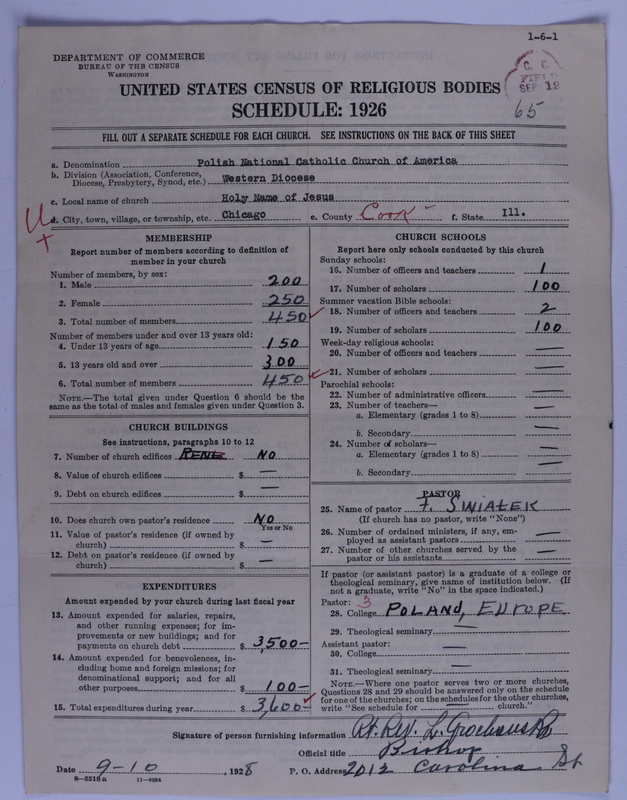 1-6-1
DEPARTMENT OF COMMERCE
BUREAU OF THE CENSUS
WASHINGTON
C. C.
FIELD
SEP 12
65
UNITED STATES CENSUS OF RELIGIOUS BODIES
SCHEDULE: 1926
FILL OUT A SEPARATE SCHEDULE FOR EACH CHURCH. SEE INSTRUCTIONS ON THE BACK OF THIS SHEET
a. Denomination Polish National Catholic Church of America
b. Division (Association, Conference, Diocese, Presbytery, Synod, etc.) Western Diocese
c. Local name of church Holy Name of Jesus
d. City, town, village, or township, etc. Chicago e. County Cook f. State Ill.
MEMBERSHIP
Report number of members according to definition of
member in your church
Number of members, by sex:
1. Male 200
2. Female 250
3. Total number of members 450
Number of members under and over 13 years old:
4. Under 13 years of age 150
5. 13 years old and over 300
6. Total number of members 450
NOTE.—The total given under Question 6 should be
same as the total of males and females given under Question 3.
CHURCH BUILDINGS
See instructions, paragraphs 10 to 12
7. Number of church edifices RENT NO
8. Value of church edifices $ —
9. Debt on church edifices $ —
10. Does church own pastor's residence NO
Yes or No
11. Value of pastor's residence (if owned by
church) $ —
12. Debt on pastor's residence (if owned by
church) $ —
EXPENDITURES
Amount expended by your church during last fiscal year
13. Amount expended for salaries, repairs,
and other running expenses; for im-
provements or new buildings; and for
payments on church debt $ 3,500—
14. Amount expended for benevolences, in-
cluding home and foreign missions; for
denominational support; and for all
other purposes $ 100—
15. Total expenditures during year $ 3,600—
CHURCH SCHOOLS
Report here only schools conducted by this church
Sunday schools:
16. Number of officers and teachers 1
17. Number of scholars 100
Summer vacation Bible schools:
18. Number of officers and teachers 2
19. Number of scholars 100
Week-day religious schools:
20. Number of officers and teachers —
21. Number of scholars —
Parochial schools:
22. Number of administrative officers —
23. Number of teachers—
a. Elementary (grades 1 to 8) —
b. Secondary —
24. Number of scholars—
a. Elementary (grades 1 to 8) —
b. Secondary —
PASTOR
25. Name of pastor F. SWIATEK
(If church has no pastor, write "None")
26. Number of ordained ministers, if any, em-
ployed as assistant pastors —
27. Number of other churches served by the
pastor or his assistants —
If pastor (or assistant pastor) is a graduate of a college or
theological seminary, give name of institution below. (If
not a graduate, write "No" in the space indicated.)
Pastor: 3
28. College POLAND, EUROPE
29. Theological seminary —
Assistant pastor:
30. College —
31. Theological seminary —
NOTE.—Where one pastor serves two or more churches,
Questions 28 and 29 should be answered only on the schedule
for one of the churches; on the schedules for the other churches,
write "See schedule for — church."
Signature of person furnishing information Rt. Rev. L. Grochowski
Official title Bishop
Date 9-10, 1928 P. O. Address 2012 Carolina St
8-5518 a 11-9064